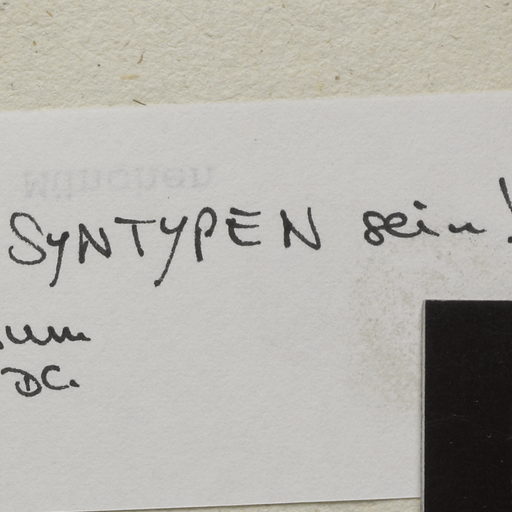 München
SYNTYPEN sein!
DC.